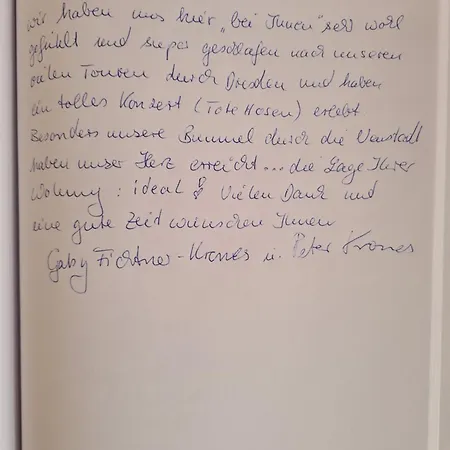 wir haben uns hier „bei Ihnen" sehr wohl
gefühlt und super geschlafen nach unseren
vielen Touren durch Dresden und haben
ein tolles Konzert (Tote Hosen) erlebt
Besonders unsere Bummel durch die Neustadt
haben unser Herz erreicht... die Lage Ihrer
Wohnung: ideal! Vielen Dank und
eine gute Zeit wünschen Ihnen
Gaby Fichtner-Krones u. Peter Krones